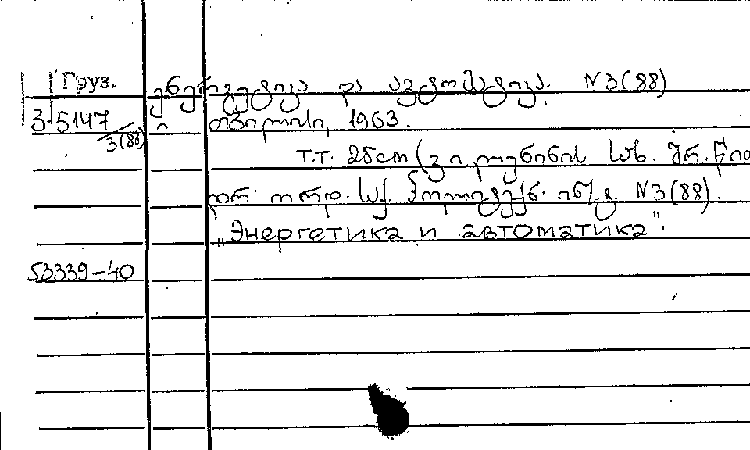 Груз. ენერგეტიკა და ავტომატიკა. N3(88)
3-5147 თბილისი, 1963.
3(88)
т.т. 25cm (ვ. ი. ლენინის სახ. შრ. წით
დრ. ორდ. საქ. პოლიტექნ. ინ/ტ N3(88).
„Энергетика и автоматика".
53339-40